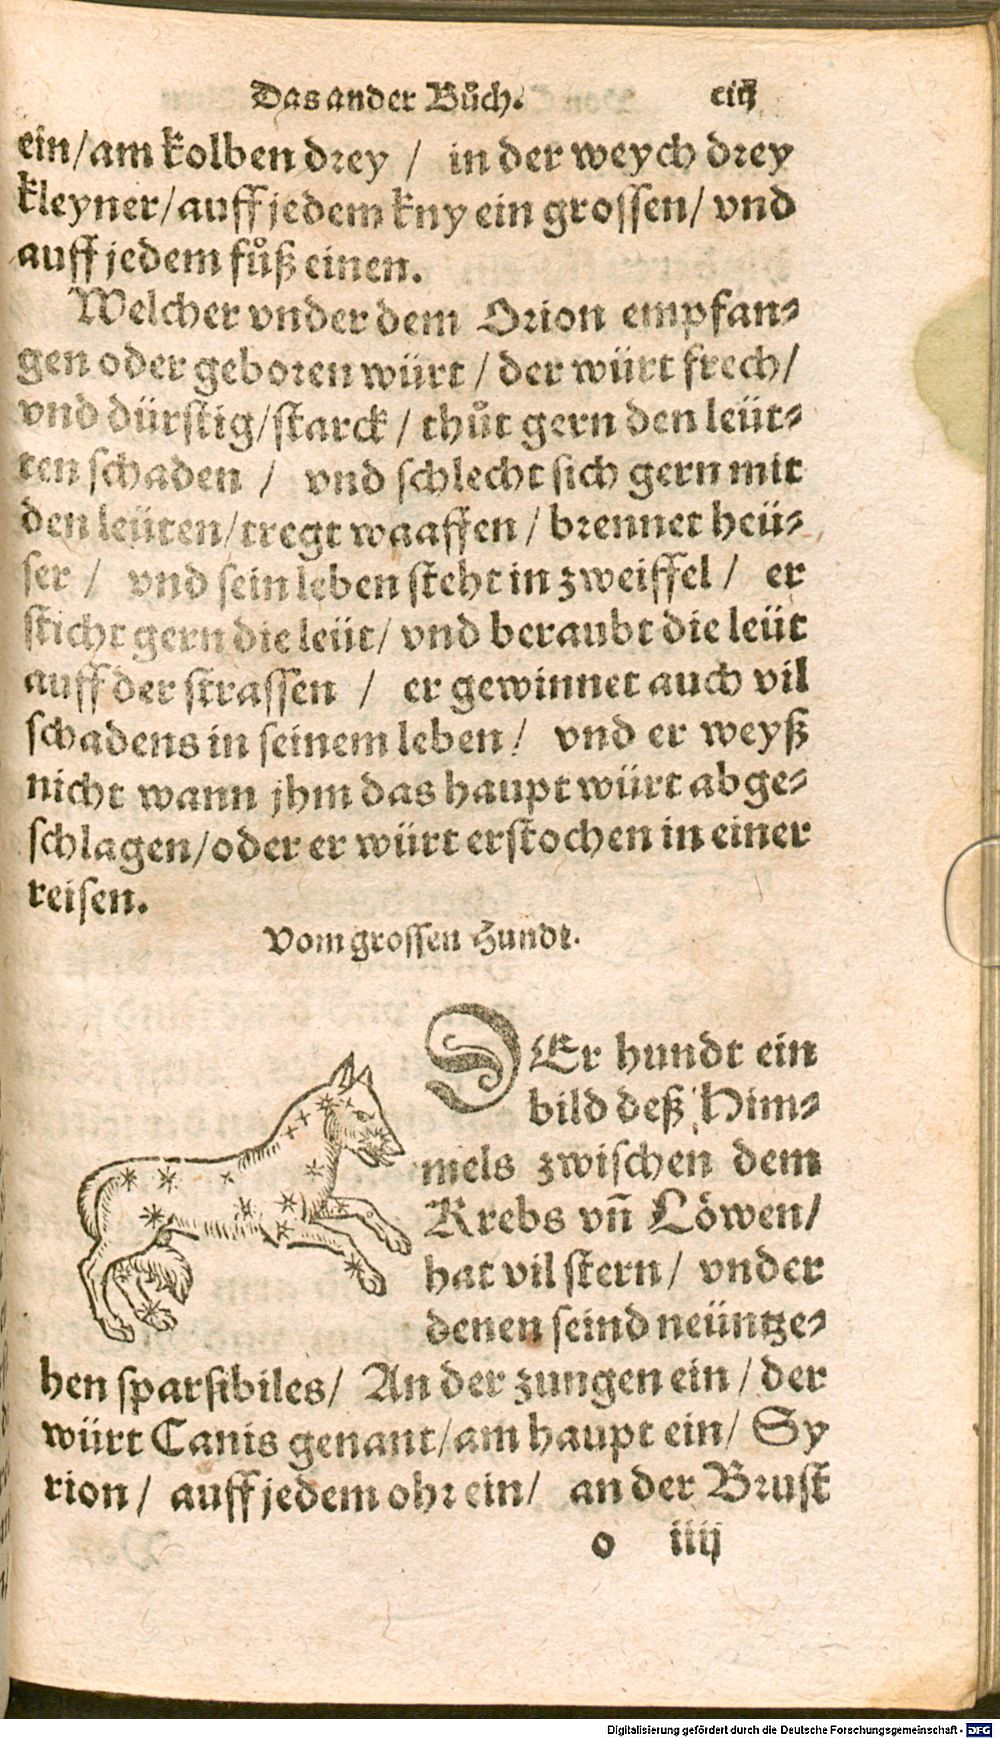 Das ander Bůch. ciij
ein/am kolben drey / in der weych drey
kleyner/auff jedem kny ein grossen/ vnd
auff jedem fůß einen.
Welcher vnder dem Orion empfan-
gen oder geboren würt / der würt frech/
vnd dürstig/starck / thůt gern den leüt-
ten schaden / vnd schlecht sich gern mit
den leüten/tregt waaffen / brennet heü-
ser / vnd sein leben steht in zweiffel / er
sticht gern die leüt/ vnd beraubt die leüt
auff der strassen / er gewinnet auch vil
schadens in seinem leben / vnd er weyß
nicht wann jhm das haupt würt abge-
schlagen/oder er würt erstochen in einer
reisen.
Vom grossen Hundt.
DEr hundt ein
bild deß Him-
mels zwischen dem
Krebs vñ Löwen/
hat vil stern/ vnder
denen seind neüntze-
hen sparsibiles/ An der zungen ein / der
würt Canis genant/am haupt ein/ Sy
rion / auff jedem ohr ein/ an der Brust
o iiij
Digitalisierung gefördert durch die Deutsche Forschungsgemeinschaft - DFG